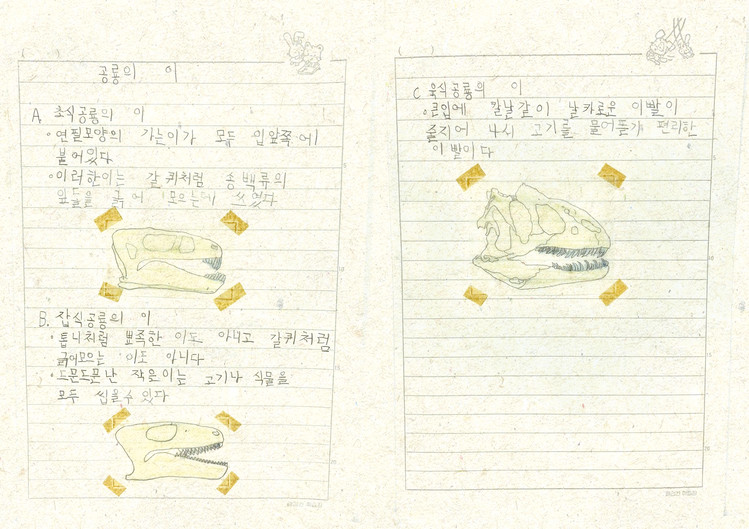 공룡의 이
A. 초식공룡의 이
• 연필모양의 가는이가 모두 입앞쪽에
붙어있다
• 이러한이는 갈퀴처럼 송백류의
잎들을 긁어 모으는데 쓰였다
B. 잡식공룡의 이
• 톱니처럼 뾰족한 이도 아니고 갈퀴처럼
긁어모으는 이도 아니다
• 드문드문난 작은이는 고기나 식물을
모두 씹을수 있다
( )
C. 육식공룡의 이
• 큰입에 칼날같이 날카로운 이빨이
줄지어 나서 고기를 물어뜯기 편리한
이빨이다